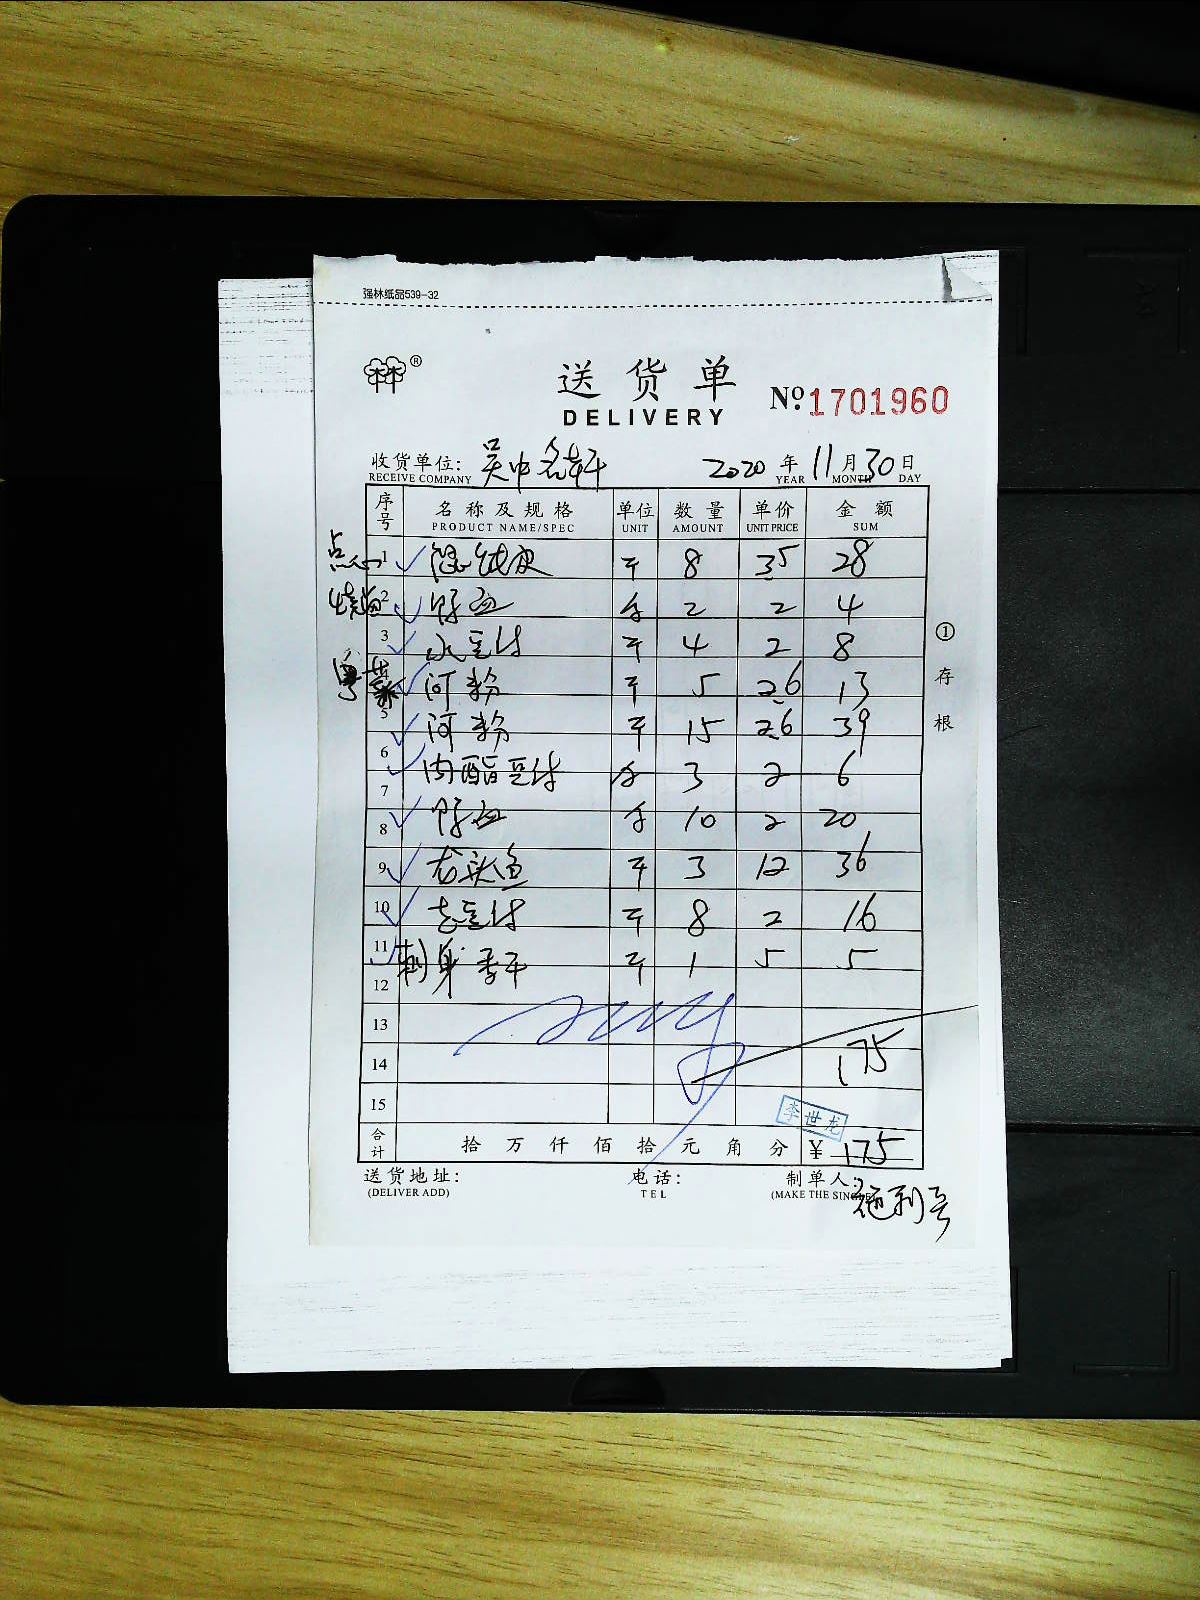 强林纸品539-32
林林 ®
送货单
DELIVERY
№:1701960
收货单位: 吴中名轩 2020 年 11 月 30 日
RECEIVE COMPANY YEAR MONTH DAY
序号 名称及规格 单位 数量 单价 金额
PRODUCT NAME/SPEC UNIT AMOUNT UNIT PRICE SUM
点心 1 斤 8 3.5 28
烧腊 2 2 2 4
3 水豆付 斤 4 2 8
粤菜 4 河粉 斤 5 2.6 13
5 河粉 斤 15 2.6 39
6 内酯豆付 3 2 6
7
8 10 2 20
9 龙头鱼 斤 3 12 36
10 老豆付 斤 8 2 16
11 刺身 斤 1 5 5
12
13
14 175
15
李世龙
合计 拾 万 仟 佰 拾 元 角 分 ¥ 175
送货地址: 电话: 制单人:
(DELIVER ADD) TEL (MAKE THE SINGLE)
①存根